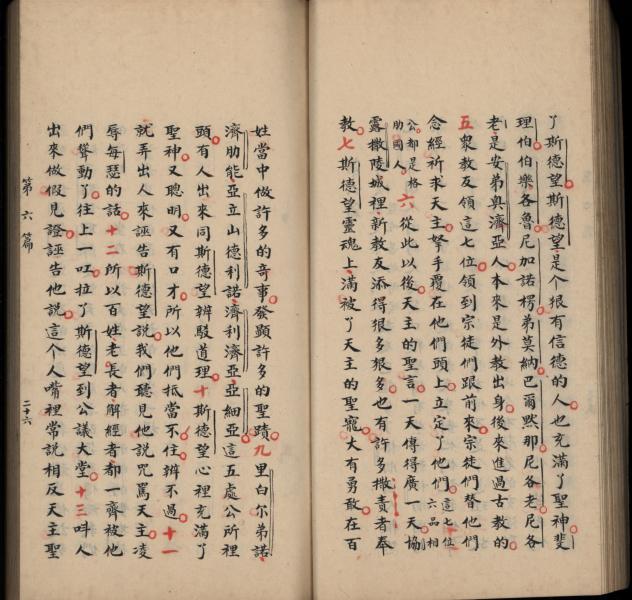 了斯德望斯德望是个狠有信德的人也充滿了聖神斐
理伯伯樂各魯尼加諾楞弟莫納巴爾黙那尼各老尼各
老是安弟奧濟亞人本來是外教出身後來進過古教的
五衆教友領這七位領到宗徒們跟前來宗徒們替他們
念經祈求天主拏手覆在他們頭上立定了他們這七位六品相
公都是格肋國人六從此以後天主的聖言一天傳得廣一天協
露撒陵城裡新教友添得狠多狠多也有許多撒責者奉
教七斯德望靈魂上滿被了天主的聖寵大有勇敢在百
姓當中做許多的竒事發顯許多的聖蹟九里白爾弟諾
濟肋能亞立山德利諾濟利濟亞亞細亞這五處公所裡
頭有人出來同斯德望辨駁道理十斯德望心裡充滿了
聖神又聰明又有口才所以他們抵當不住辨不過十一
就弄出人來誣告斯德望說我們聽見他說咒罵天主凌
辱每瑟的話十二所以百姓老長者解經者都一齊被他
們聳動了往上一拉了斯德望到公議大堂十三呌人
出來做假見證誣告他說這個人嘴裡常說相反天主聖
第六篇
二十六